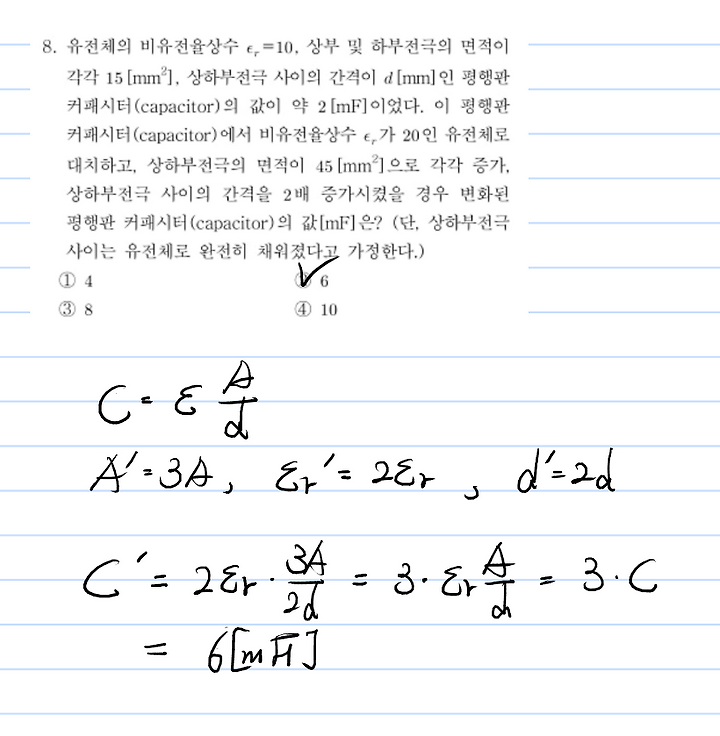 8. 유전체의 비유전율상수 ϵᵣ=10, 상부 및 하부전극의 면적이
각각 15[mm²], 상하부전극 사이의 간격이 d[mm]인 평행판
커패시터(capacitor)의 값이 약 2[mF]이었다. 이 평행판
커패시터(capacitor)에서 비유전율상수 ϵᵣ가 20인 유전체로
대치하고, 상하부전극의 면적이 45[mm²]으로 각각 증가,
상하부전극 사이의 간격을 2배 증가시켰을 경우 변화된
평행판 커패시터(capacitor)의 값[mF]은? (단, 상하부전극
사이는 유전체로 완전히 채워졌다고 가정한다.)
① 4 ② 6
③ 8 ④ 10
C = ε A/d
A' = 3A, εr' = 2εr, d' = 2d
C' = 2εr · 3A/2d = 3 · εr A/d = 3 · C
= 6[mF]